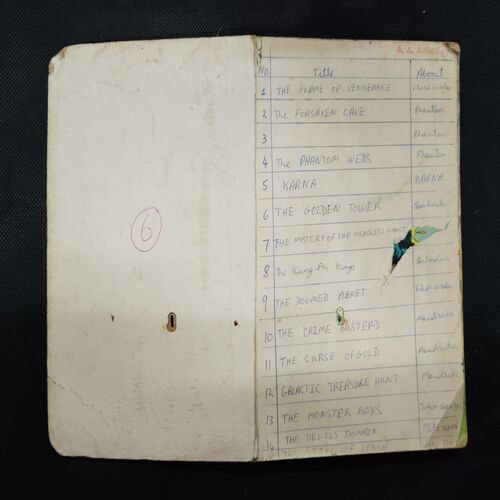 6
A. A.
No. Title About
1 THE FLAME OF VENGEANCE Flash Gordon
2 The FORSAKEN CAVE Phantom
3 Phantom
4 The PHANTOM WEDS Phantom
5 KARNA KARNA
6 THE GOLDEN TOWER
7 THE MYSTERY OF THE HEADLESS GHOST
8 The Kung-Fu Kings
9 THE DOOMED PLANET Flash Gordon
10 THE CRIME BUSTERS Mandrake
11 THE CURSE OF GOLD Mandrake
12 GALACTIC TREASURE HUNT Mandrake
13 THE MONSTER BOYS
14 THE DEVILS DOMAIN